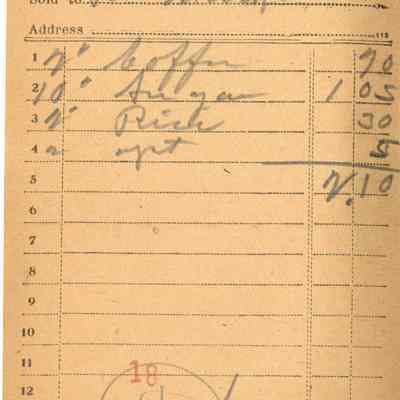 Sold to
Address 113
1 2" Coffee 70
2 10" Sugar 1 05
3 2" Rice 30
4 2 5
5 2.10
6
7
8
9
10
11 18
12